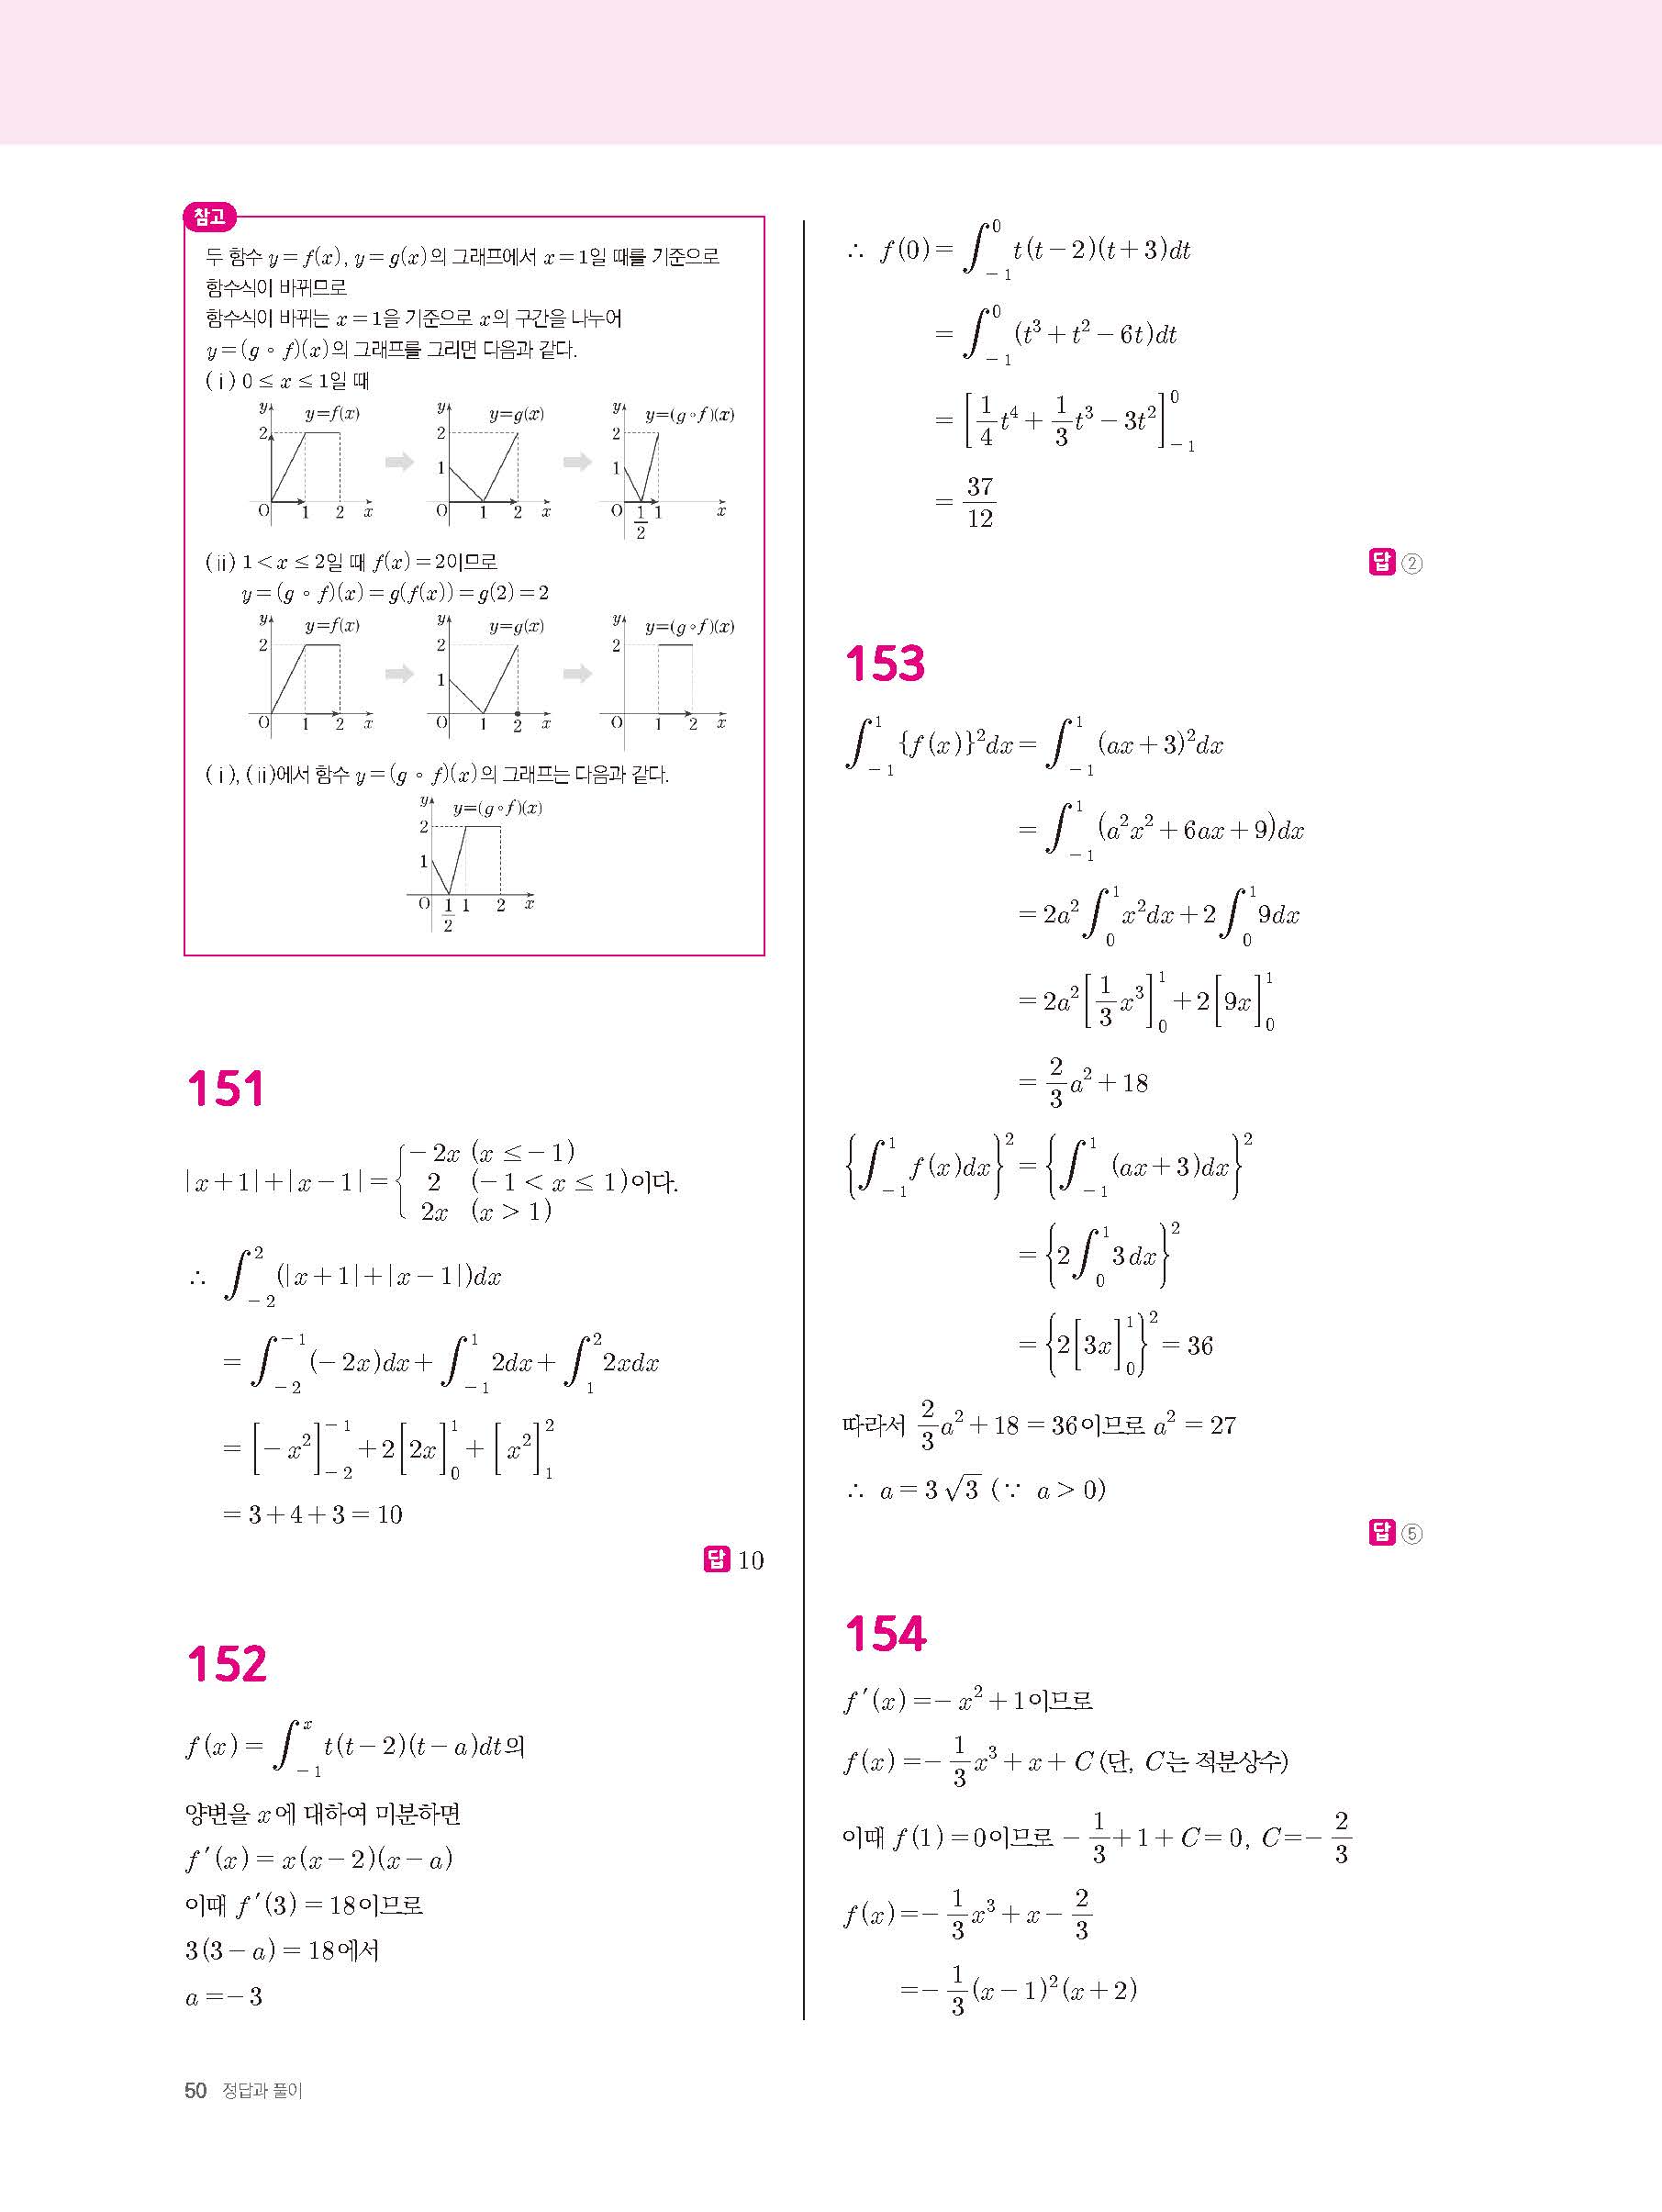 참고
두 함수 y=f(x), y=g(x)의 그래프에서 x=1일 때를 기준으로
함수식이 바뀌므로
함수식이 바뀌는 x=1을 기준으로 x의 구간을 나누어
y=(g∘f)(x)의 그래프를 그리면 다음과 같다.
(ⅰ) 0≤x≤1일 때
y y=f(x) 2 O 1 2 x
y y=g(x) 2 1 O 1 2 x
y y=(g∘f)(x) 2 1 O 1/2 1 x
(ⅱ) 1<x≤2일 때 f(x)=2이므로
y=(g∘f)(x)=g(f(x))=g(2)=2
y y=f(x) 2 O 1 2 x
y y=g(x) 2 1 O 1 2 x
y y=(g∘f)(x) 2 O 1 2 x
(ⅰ), (ⅱ)에서 함수 y=(g∘f)(x)의 그래프는 다음과 같다.
y y=(g∘f)(x) 2 1 O 1/2 1 2 x
151
|x+1|+|x-1|={ -2x (x≤-1)
2 (-1<x≤1)이다.
2x (x>1)
∴ ∫_{-2}^{2} (|x+1|+|x-1|)dx
=∫_{-2}^{-1} (-2x)dx+∫_{-1}^{1} 2dx+∫_{1}^{2} 2xdx
=[-x²]_{-2}^{-1}+2[2x]_{0}^{1}+[x²]_{1}^{2}
=3+4+3=10
답 10
152
f(x)=∫_{-1}^{x} t(t-2)(t-a)dt의
양변을 x에 대하여 미분하면
f′(x)=x(x-2)(x-a)
이때 f′(3)=18이므로
3(3-a)=18에서
a=-3
∴ f(0)=∫_{-1}^{0} t(t-2)(t+3)dt
=∫_{-1}^{0} (t³+t²-6t)dt
=[1/4 t⁴+1/3 t³-3t²]_{-1}^{0}
=37/12
답 ②
153
∫_{-1}^{1} {f(x)}²dx=∫_{-1}^{1} (ax+3)²dx
=∫_{-1}^{1} (a²x²+6ax+9)dx
=2a²∫_{0}^{1} x²dx+2∫_{0}^{1} 9dx
=2a²[1/3 x³]_{0}^{1}+2[9x]_{0}^{1}
=2/3 a²+18
{∫_{-1}^{1} f(x)dx}²={∫_{-1}^{1} (ax+3)dx}²
={2∫_{0}^{1} 3dx}²
={2[3x]_{0}^{1}}²=36
따라서 2/3 a²+18=36이므로 a²=27
∴ a=3√3 (∵ a>0)
답 ⑤
154
f′(x)=-x²+1이므로
f(x)=-1/3 x³+x+C (단, C는 적분상수)
이때 f(1)=0이므로 -1/3+1+C=0, C=-2/3
f(x)=-1/3 x³+x-2/3
=-1/3 (x-1)²(x+2)
50 정답과 풀이